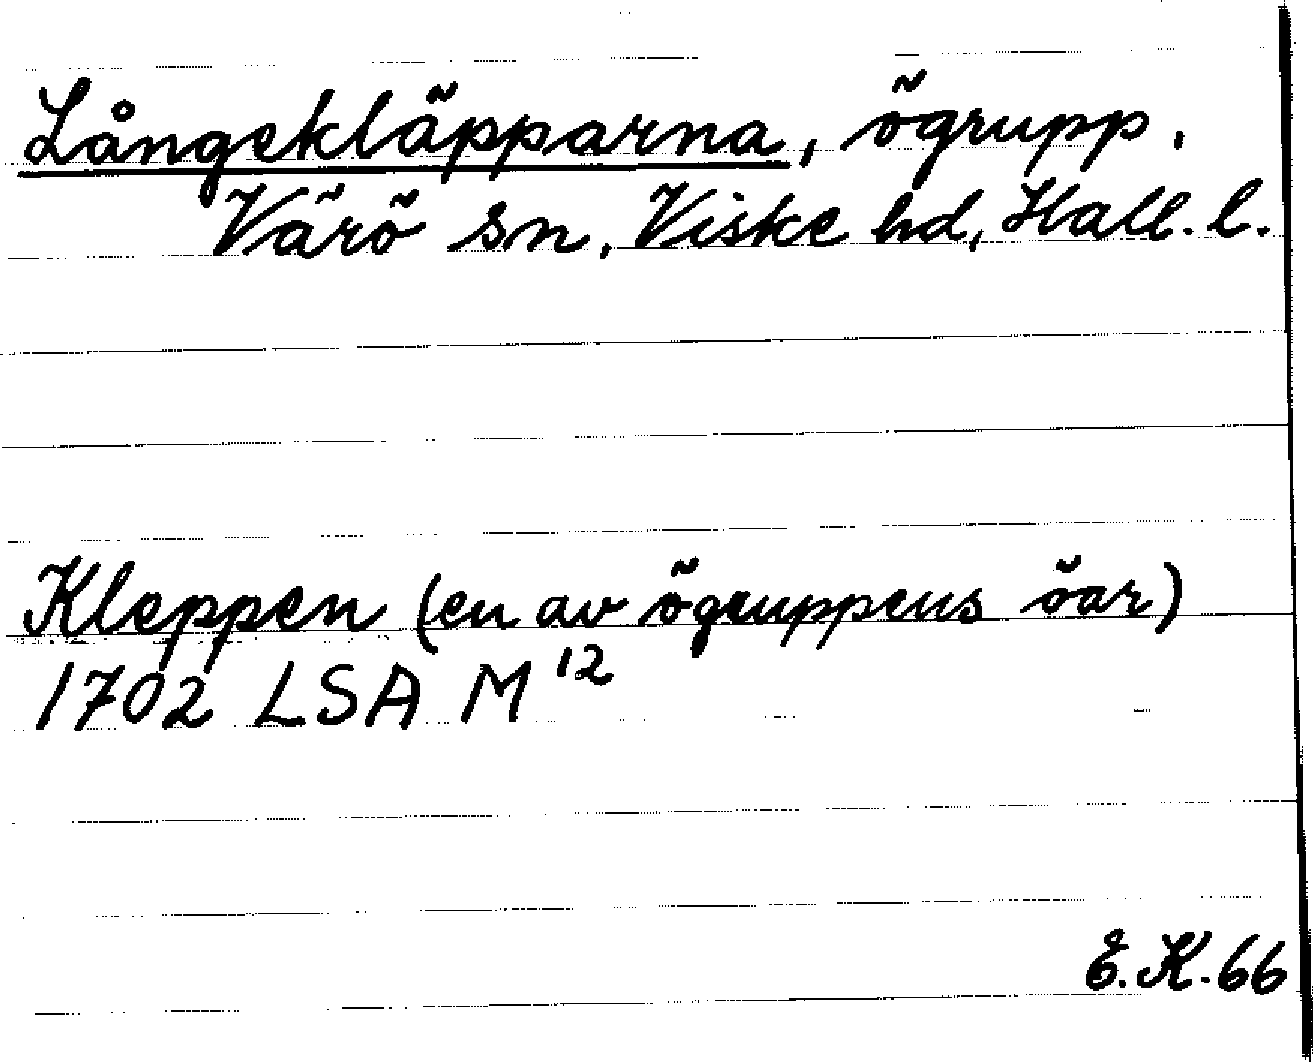 Långekläpparna, ögrupp.
Värö sn, Viske hd, Hall. l.
Kleppen (en av ögruppens öar)
1702 LSA M¹²
E.K.66